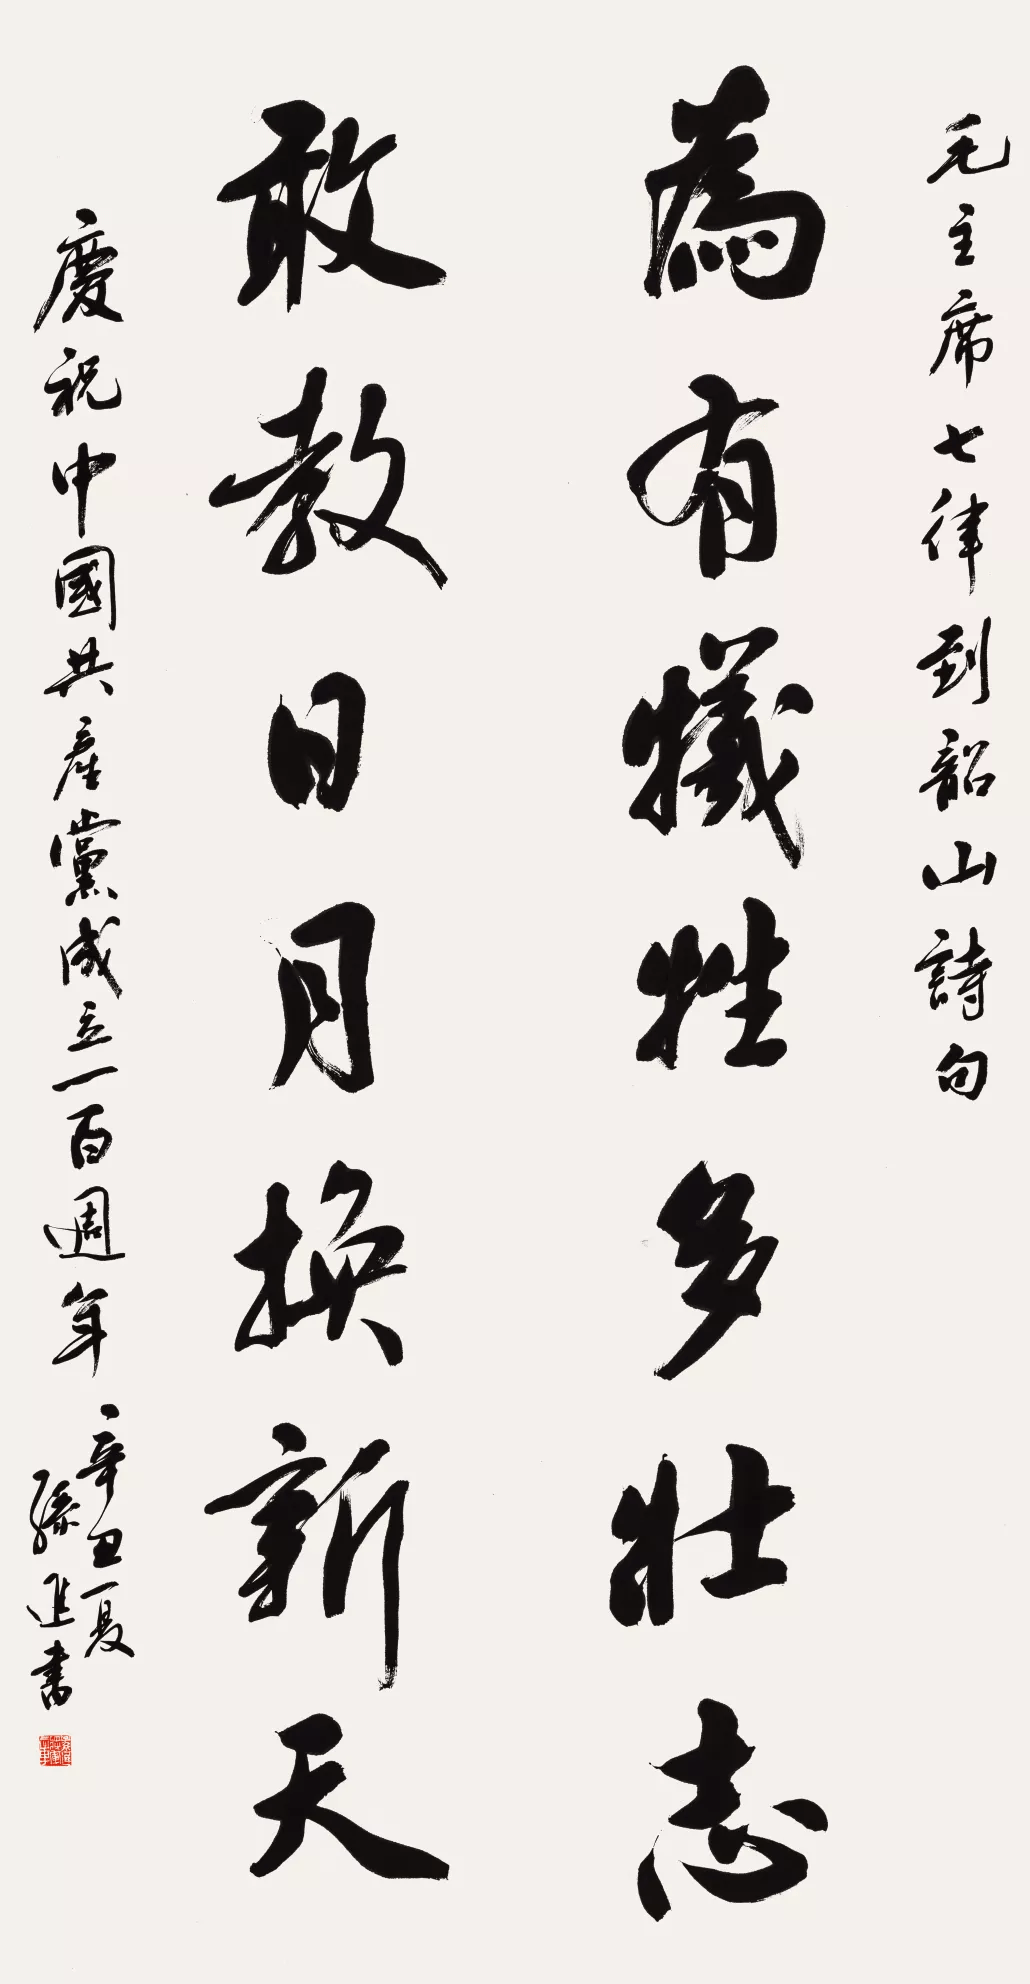 毛主席七律到韶山詩句
為有犧牲多壯志
敢教日月換新天
慶祝中國共產黨成立一百週年
辛丑夏
孫進書